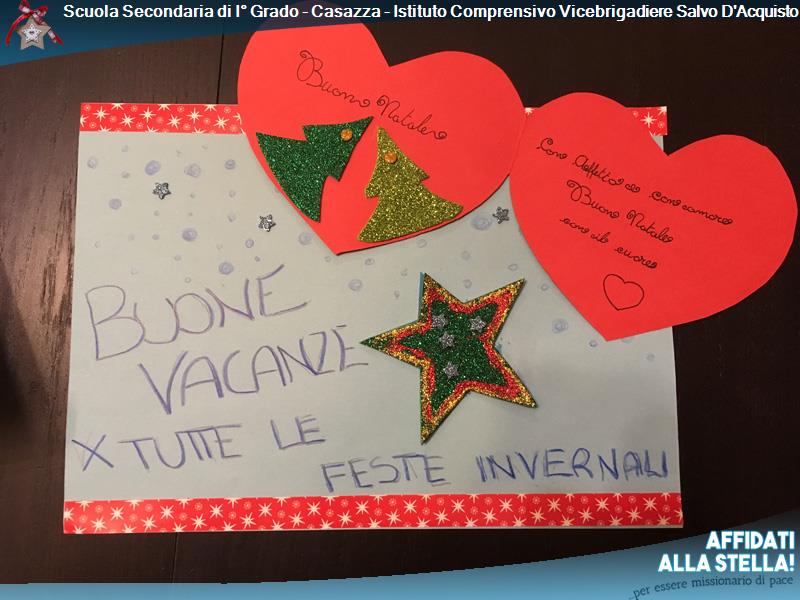 Scuola Secondaria di I° Grado - Casazza - Istituto Comprensivo Vicebrigadiere Salvo D'Acquisto
Buon Natale
Con Affetto e con amore
Buon Natale
con il cuore
BUONE
VACANZE
X TUTTE LE
FESTE INVERNALI
AFFIDATI
ALLA STELLA!
...per essere missionario di pace